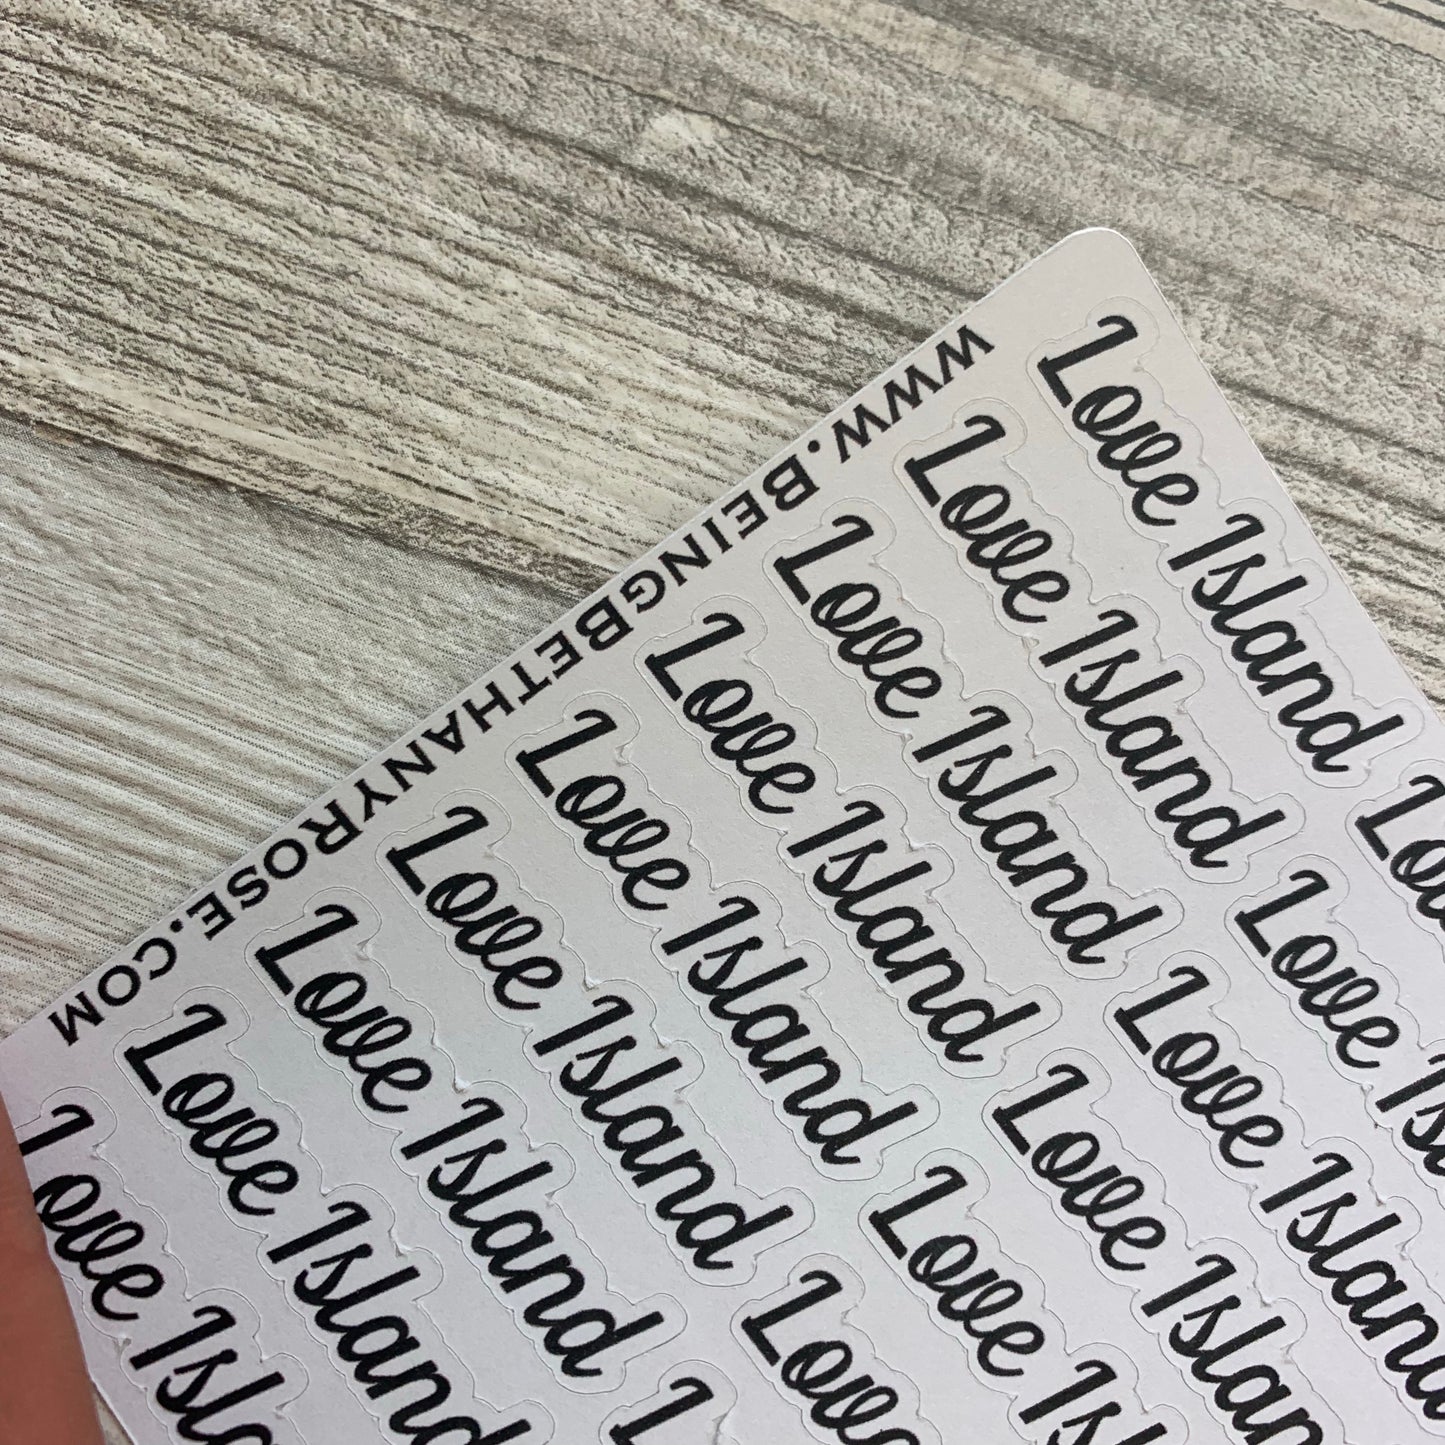 WWW.BEINGBETHANYROSE.COM
Love Island
Love Island
Love Island
Love Island
Love Island
Love Island
Love Island
Love Island
Love
Love
Love Island
Love Island
Love
Love